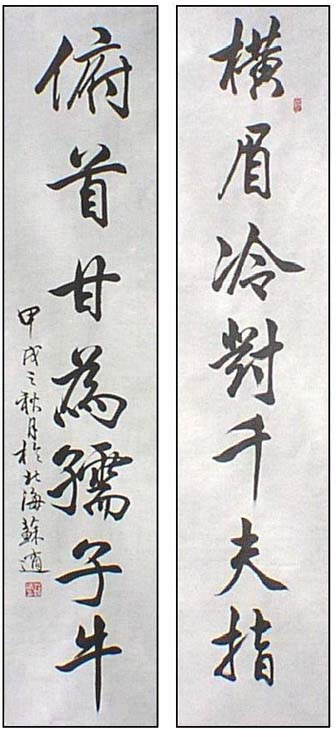 橫眉冷對千夫指
俯首甘為孺子牛
甲戌之秋月於北海蘇逍